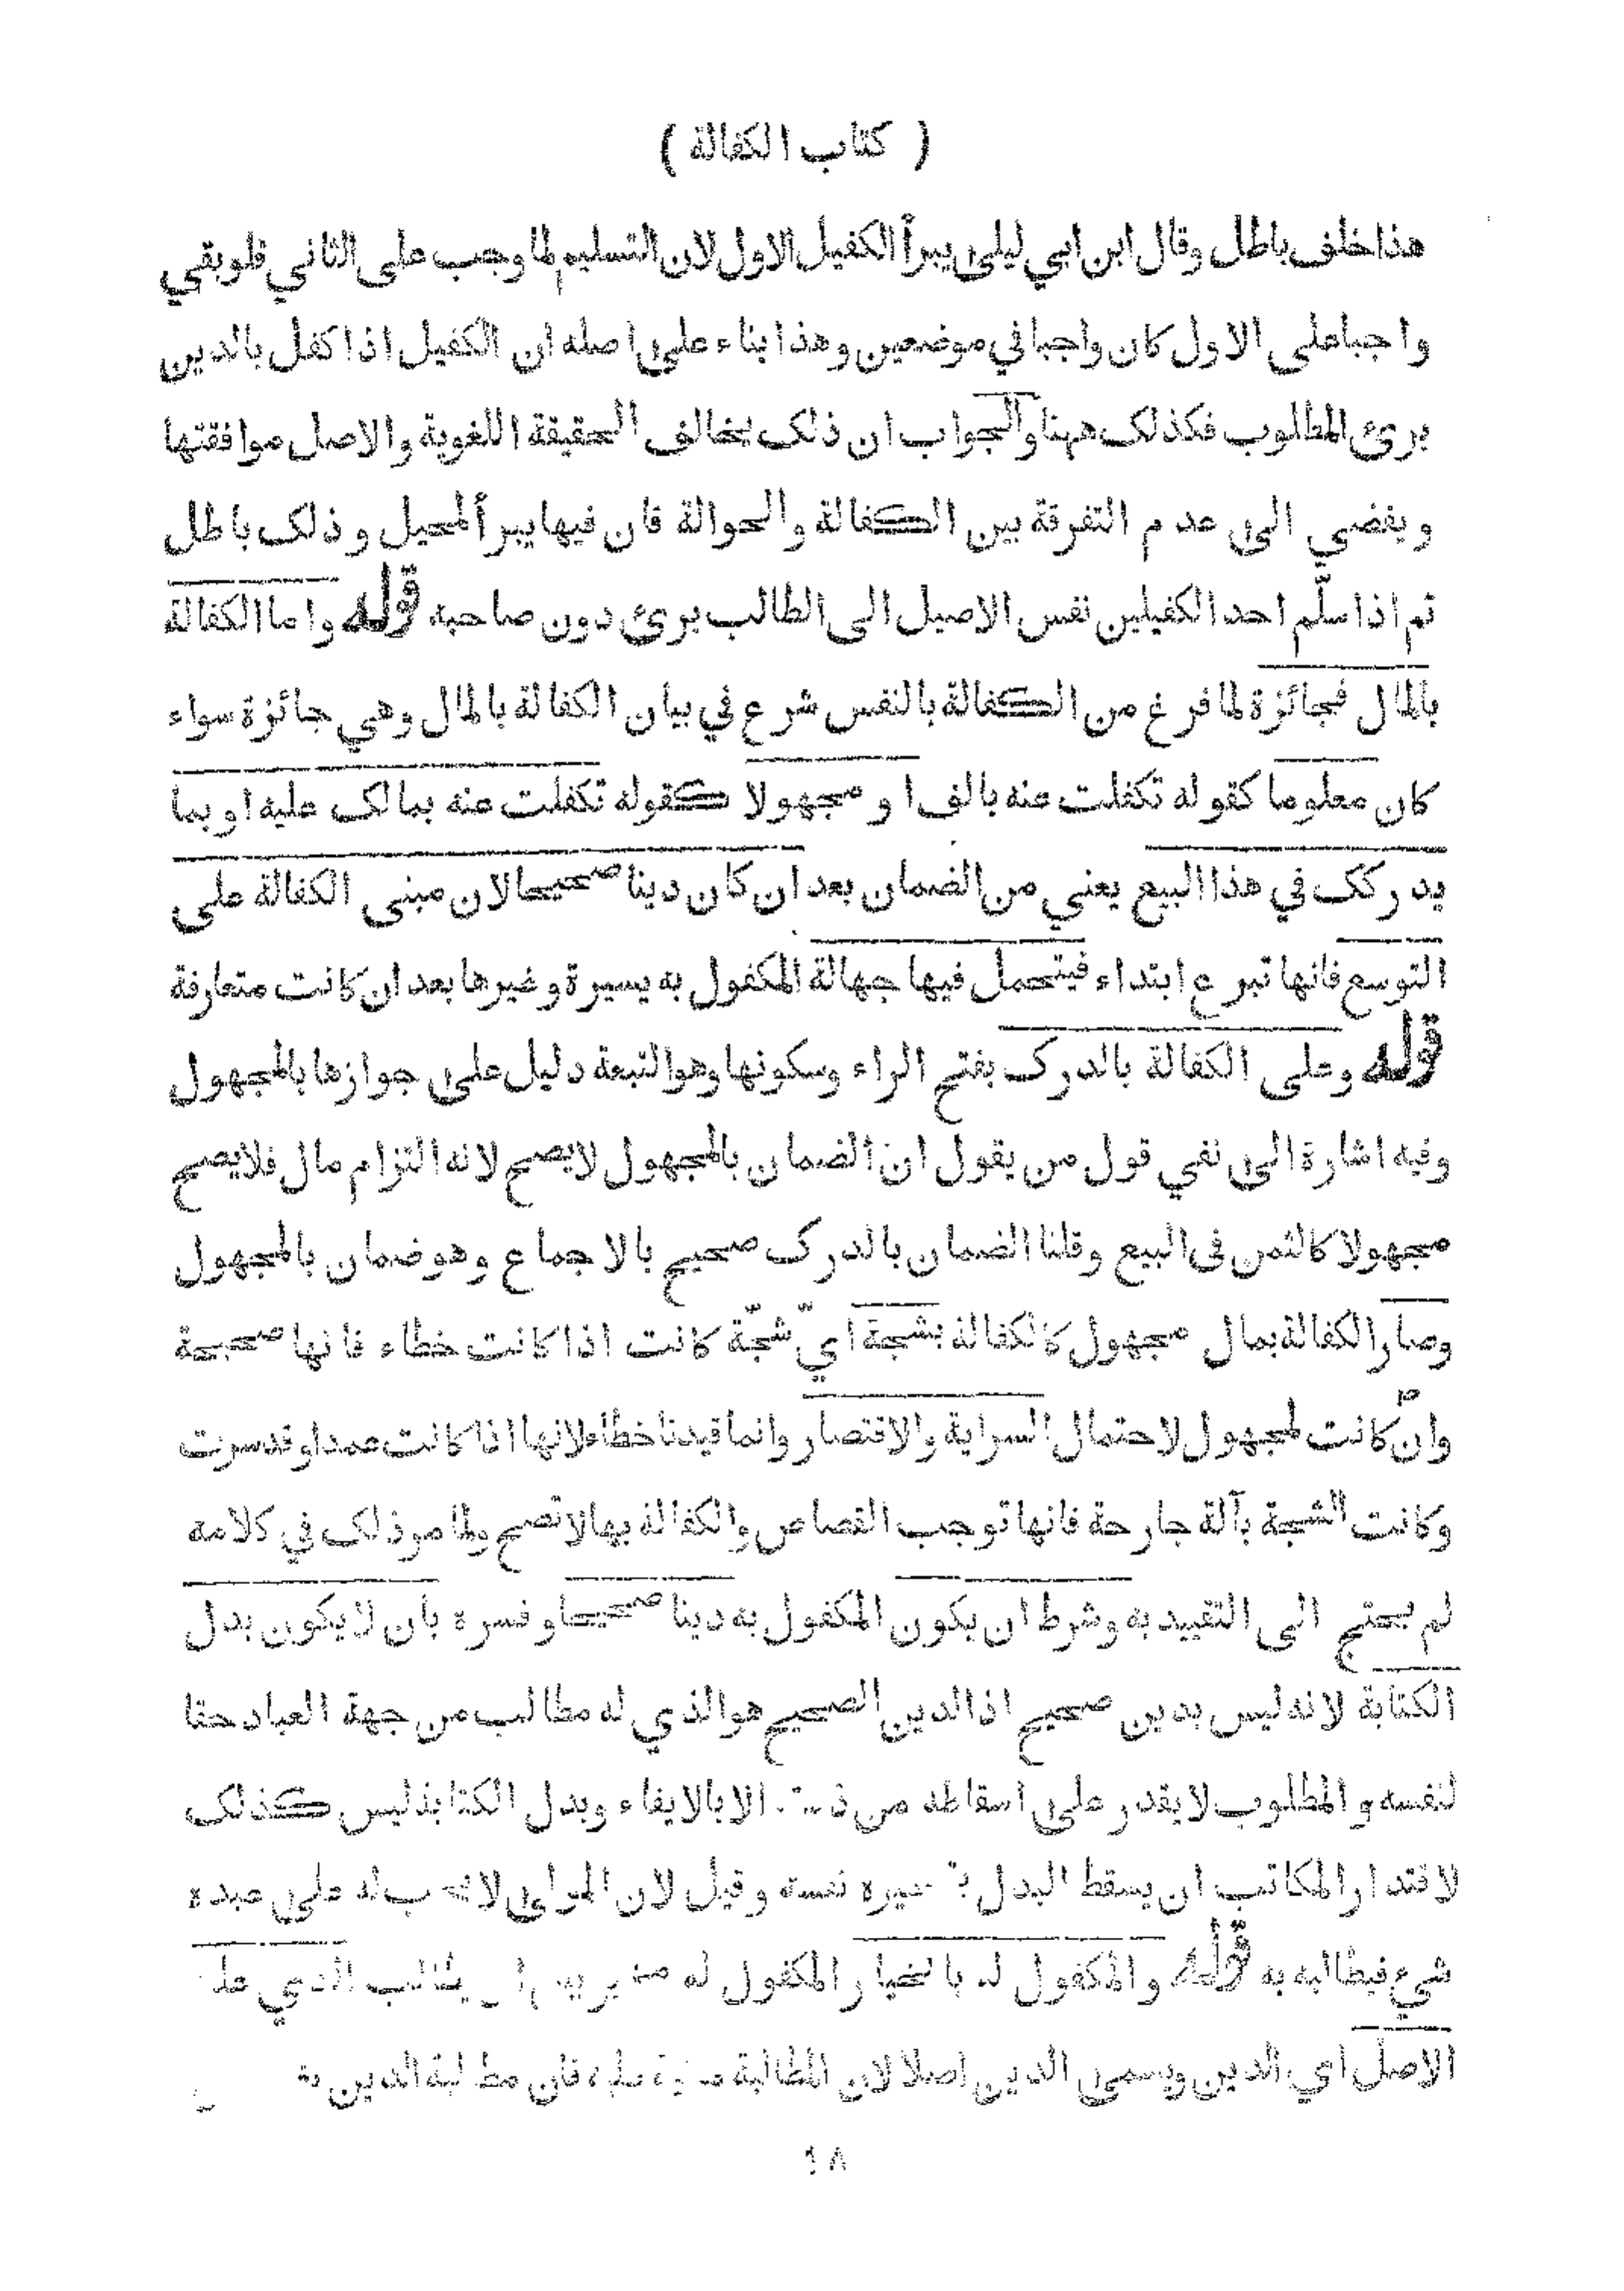 ( كتاب الكفالة )
هذا خلف باطل وقال ابن ابي ليلى يبرأ الكفيل الاول لان التسليم لما وجب على الثاني فلو بقي
واجبا على الاول كان واجبا في موضعين وهذا بناء على اصله ان الكفيل اذا كفل بالدين
برئ المطلوب فكذلك ههنا والجواب ان ذلك يخالف الحقيقة اللغوية والاصل موافقتها
ويفضي الى عدم التفرقة بين الكفالة والحوالة فان فيها يبرأ المحيل وذلك باطل
ثم اذا سلّم احد الكفيلين نفس الاصيل الى الطالب برئ دون صاحبه قوله واما الكفالة
بالمال فجائزة لما فرغ من الكفالة بالنفس شرع في بيان الكفالة بالمال وهي جائزة سواء
كان معلوما كقوله تكفلت عنه بالف او مجهولا كقوله تكفلت عنه بما لك عليه او بما
يدركك في هذا البيع يعني من الضمان بعد ان كان دينا صحيحا لان مبنى الكفالة على
التوسع فانها تبرع ابتداء فيتحمل فيها جهالة المكفول به يسيرة وغيرها بعد ان كانت متعارفة
قوله وعلى الكفالة بالدرك بفتح الراء وسكونها وهو التبعة دليل على جوازها بالمجهول
وفيه اشارة الى نفي قول من يقول ان الضمان بالمجهول لا يصح لانه التزام مال فلا يصح
مجهولا كالثمن فى البيع وقلنا الضمان بالدرك صحيح بالاجماع وهو ضمان بالمجهول
وصار الكفالة بمال مجهول كالكفالة بشجة ايّ شجّة كانت اذا كانت خطاء فانها صحيحة
وان كانت لمجهول لاحتمال السراية والاقتصار وانما قيدنا خطاء لانها اذا كانت عمدا وقد سرت
وكانت الشجة بآلة جارحة فانها توجب القصاص والكفالة بها لا تصح ولما مر ذلك في كلامه
لم يحتج الى التقييد به وشرط ان يكون المكفول به دينا صحيحا وفسره بان لا يكون بدل
الكتابة لانه ليس بدين صحيح اذ الدين الصحيح هو الذي له مطالب من جهة العباد حقا
لنفسه والمطلوب لا يقدر على اسقاطه من الا بالايفاء وبدل الكتابة ليس كذلك
لاقتدار المكاتب ان يسقط البدل نفسه وقيل لان المولى لا له على عبده
شيء فيطالبه به قوله والمكفول له بالخيار المكفول له يطالب الذي
الاصل اي الدين ويسمى الدين اصلا لان المطالبة فان الدين
١٨